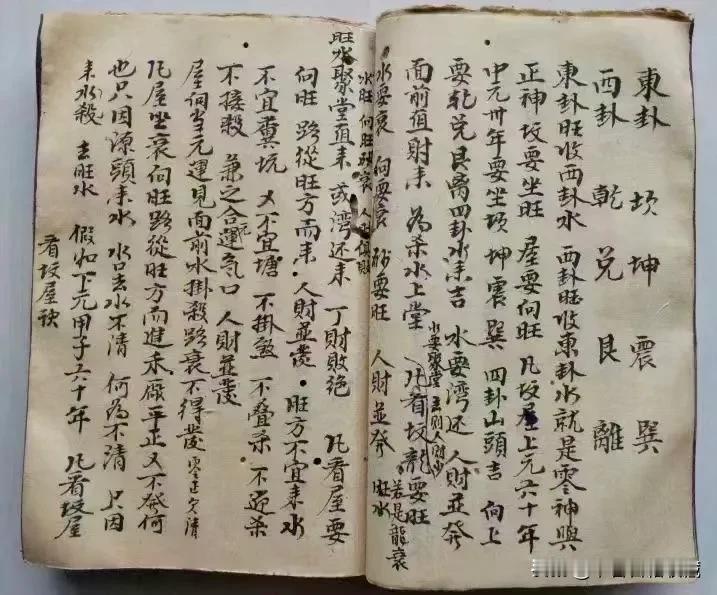 東卦 坎坤震巽
西卦 乾兌艮離
東卦旺收西卦水 西卦旺收東卦水就是零神與
正神 坟要坐旺 屋要向旺 凡坟屋上元六十年
中元卅年要坐坎坤震巽四卦山頭吉 向上
要乾兌艮离四卦水来吉 水要湾还人財並發
面前直財来 為杀水上堂 水要聚堂 去則人財少 凡看坟龍要旺 若是龍衰
水要衰 向要衰 砂要旺 人財並發 旺水
水旺 向旺砂衰 人財俱敗
旺水聚堂直来 或湾还来 丁財敗絕 凡看屋要
向旺 路從旺方而来 人財並發 旺方不宜来水
不宜糞坑 又不宜塘 不掛煞 不叠杀 不迎杀
不接殺 兼之合運氣口 人財並發
屋向当元運見面前水掛殺路衰不得發 零正欠清
凡屋坐衰向旺路從旺方而進禾廠平正又不發何
也只因源頭来水 水口去水不清 何為不清 只因
来水殺 去旺水 假如下元甲子六十年 凡看坟屋
看坟屋訣